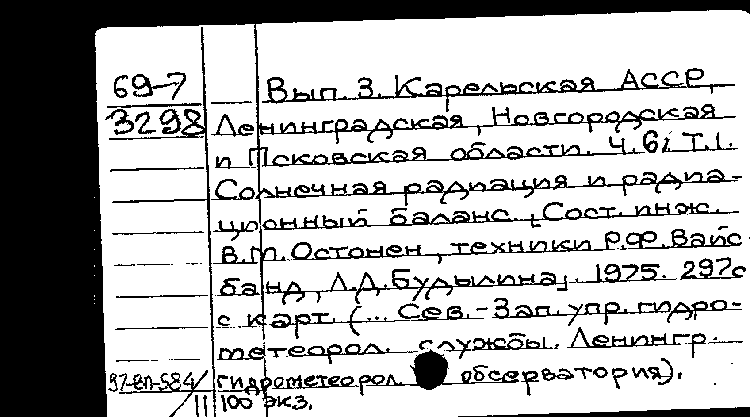 69-7
3298
Вып. 3. Карельская АССР,
Ленинградская, Новгородская
и Псковская области. Ч.6, Т.1.
Солнечная радиация и радиа-
ционный баланс. [Сост. инж.
В.М. Остонен, техники Р.Ф. Вайс-
банд, Л.Д. Будылина]. 1975. 297с
с карт. (... Сев.-Зап. упр. гидро-
метеорол. службы. Ленингр.
гидрометеорол. обсерватория).
100 экз.